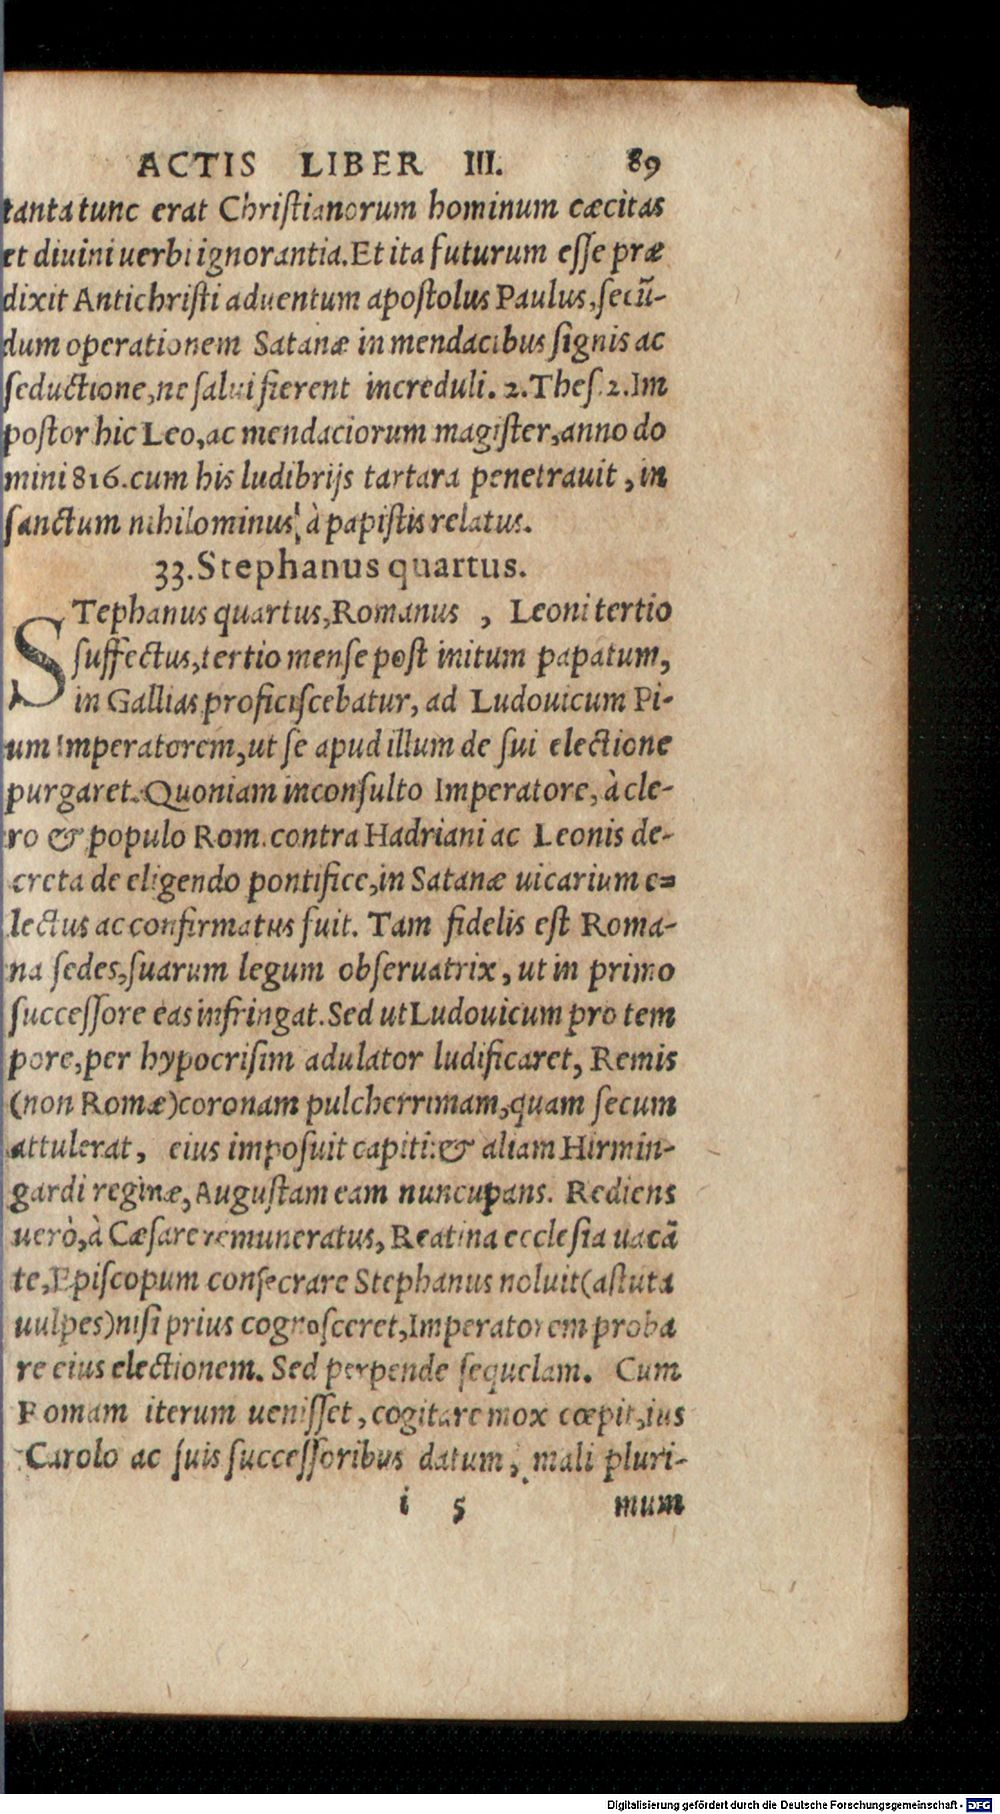 ACTIS LIBER III. 89
tanta tunc erat Christianorum hominum cæcitas
et diuini uerbi ignorantia. Et ita futurum esse præ
dixit Antichristi aduentum apostolus Paulus, secũ-
dum operationem Satanæ in mendacibus signis ac
seductione, ne salui fierent increduli. 2. Thes. 2. Im
postor hic Leo, ac mendaciorum magister, anno do
mini 816. cum his ludibrijs tartara penetrauit, in
sanctum nihilominus à papistis relatus.
33. Stephanus quartus.
STephanus quartus, Romanus, Leoni tertio
suffectus, tertio mense post initum papatum,
in Gallias proficiscebatur, ad Ludouicum Pi-
um Imperatorem, ut se apud illum de sui electione
purgaret. Quoniam inconsulto Imperatore, à cle-
ro & populo Rom. contra Hadriani ac Leonis de-
creta de eligendo pontifice, in Satanæ uicarium e-
lectus ac confirmatus fuit. Tam fidelis est Roma-
na sedes, suarum legum obseruatrix, ut in primo
successore eas infringat. Sed ut Ludouicum pro tem
pore, per hypocrisim adulator ludificaret, Remis
(non Romæ) coronam pulcherrimam, quam secum
attulerat, eius imposuit capiti: & aliam Hirmin-
gardi reginæ, Augustam eam nuncupans. Rediens
uerò, à Cæsare remuneratus, Reatina ecclesia uacã
te, Episcopum consecrare Stephanus noluit (astuta
uulpes) nisi prius cognosceret, Imperatorem proba
re eius electionem. Sed perpende sequelam. Cum
Romam iterum uenisset, cogitare mox cœpit, ius
Carolo ac suis successoribus datum, mali pluri-
i 5 mum
Digitalisierung gefördert durch die Deutsche Forschungsgemeinschaft - DFG